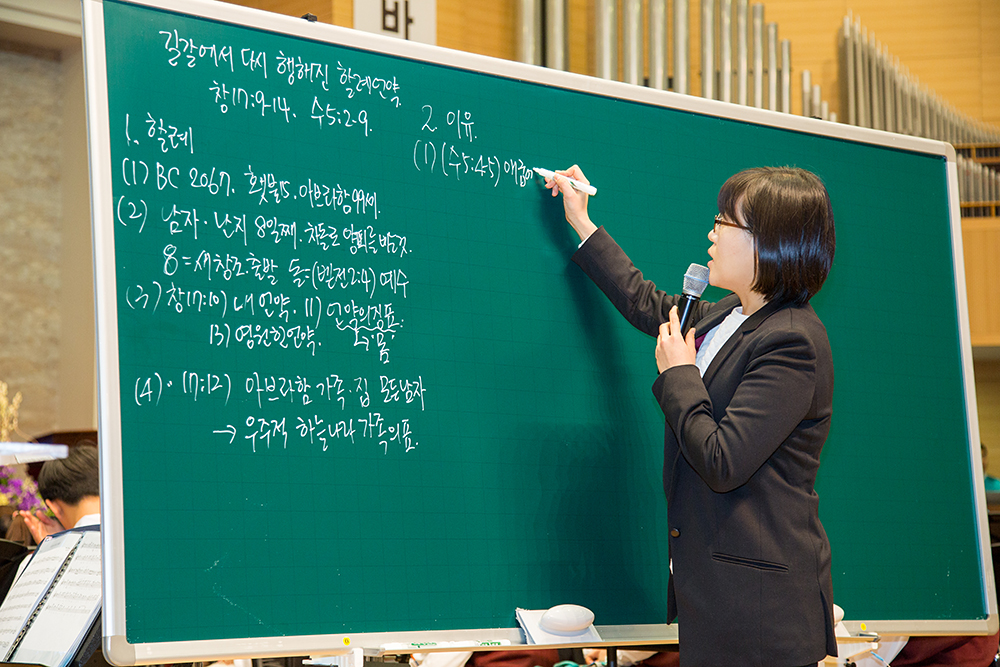 바
길갈에서 다시 행해진 할례언약.
창17:9-14. 수5:2-9.
1. 할례
(1) BC 2067. 횃불15. 아브라함99세.
(2) 남자. 난지 8일째. 차돌로 양피를 바른것.
8=새창조.출발 돌=(벧전2:4) 예수
(3) 창17:10) 내 언약. 11) 언약의징표.
13) 영원한언약.
(4). 17:12) 아브라함 가족.집 모든남자
→ 우주적 하늘나라 가족의표.
2. 이유.
(1) (수5:4-5) 애굽에